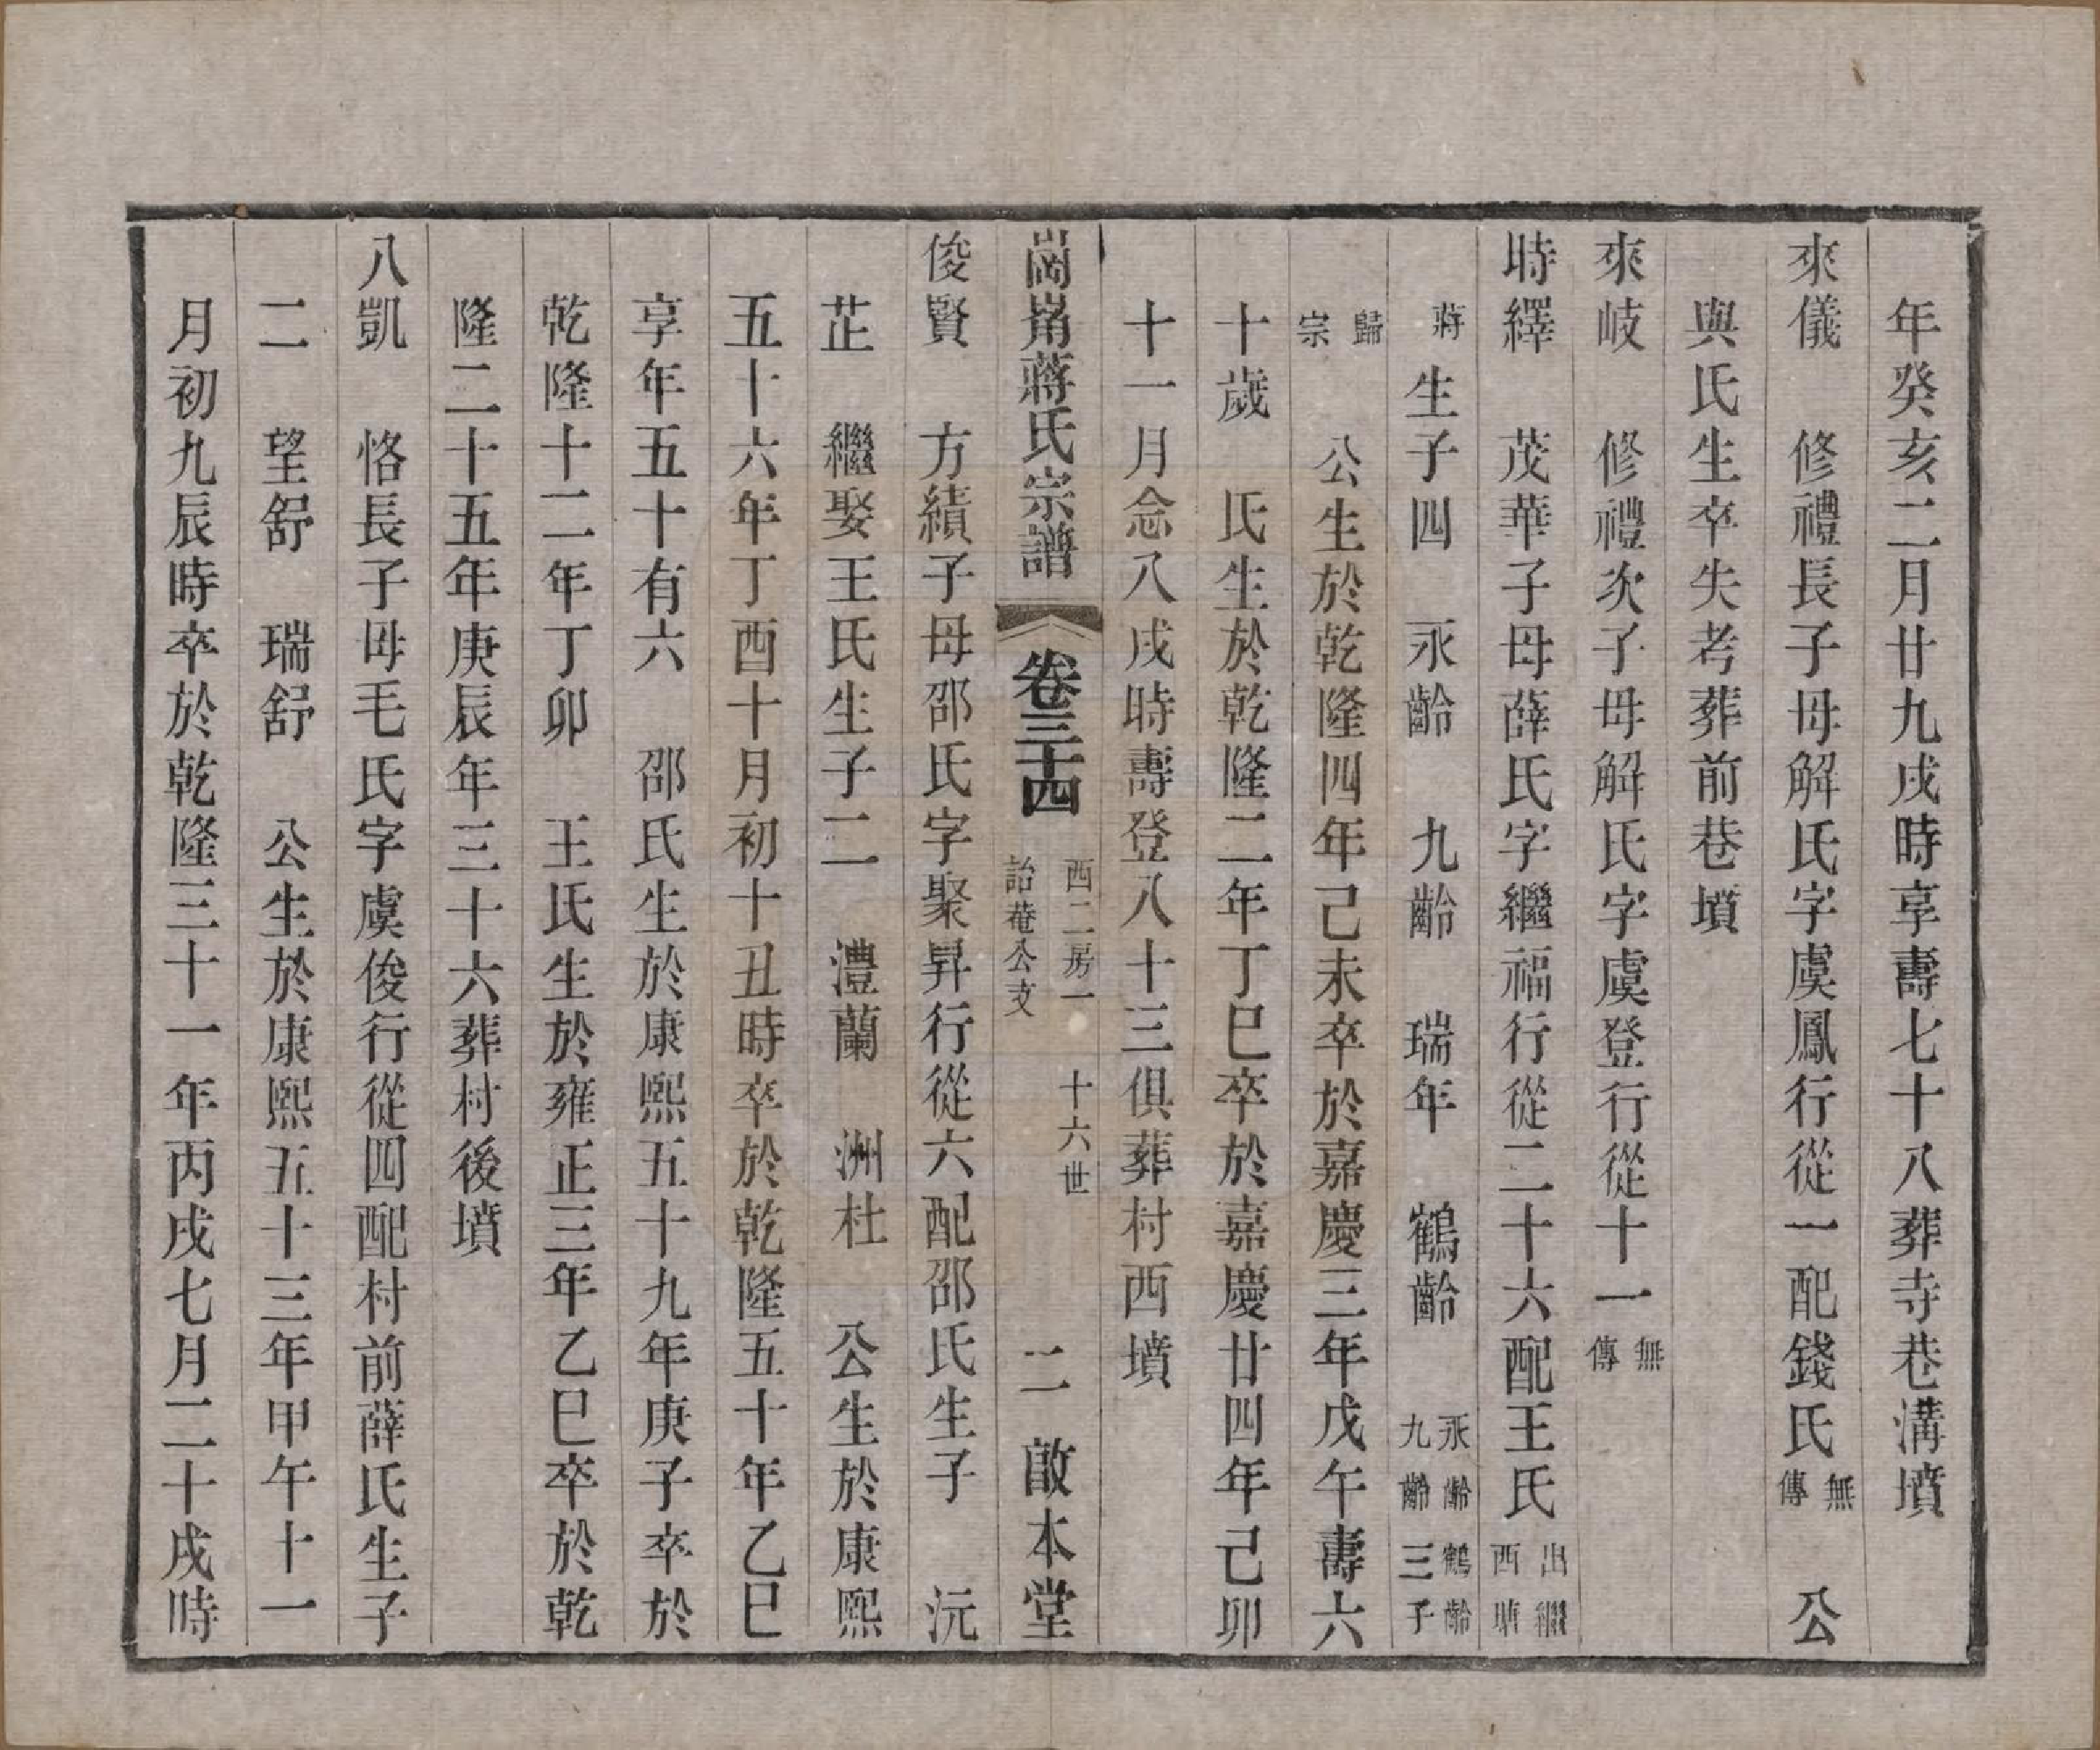 年癸亥二月廿九戌時享壽七十八葬寺巷溝墳
來儀　修禮長子母解氏字虞鳳行從一配錢氏無傳　公
與氏生卒失考葬前巷墳
來岐　修禮次子母解氏字虞登行從十一無傳
時繹　茂華子母薛氏字繼福行從二十六配王氏出繼西塘
蔣生子四　永齡　九齡　瑞年　鶴齡　永齡鶴齡九齡三子
歸宗　公生於乾隆四年己未卒於嘉慶三年戊午壽六
十歲　氏生於乾隆二年丁巳卒於嘉慶廿四年己卯
十一月念八戌時壽登八十三俱葬村西墳
崗峟蔣氏宗譜　卷三十四　西二房一詒菴公支　十六世　二　啟本堂
俊賢　方績子母邵氏字聚昇行從六配邵氏生子　沅
芷　繼娶王氏生子二　澧蘭　洲杜　公生於康熙
五十六年丁酉十月初十丑時卒於乾隆五十年乙巳
享年五十有六　邵氏生於康熙五十九年庚子卒於
乾隆十二年丁卯　王氏生於雍正三年乙巳卒於乾
隆二十五年庚辰年三十六葬村後墳
八凱　恪長子母毛氏字虞俊行從四配村前薛氏生子
二　望舒　瑞舒　公生於康熙五十三年甲午十一
月初九辰時卒於乾隆三十一年丙戌七月二十戌時